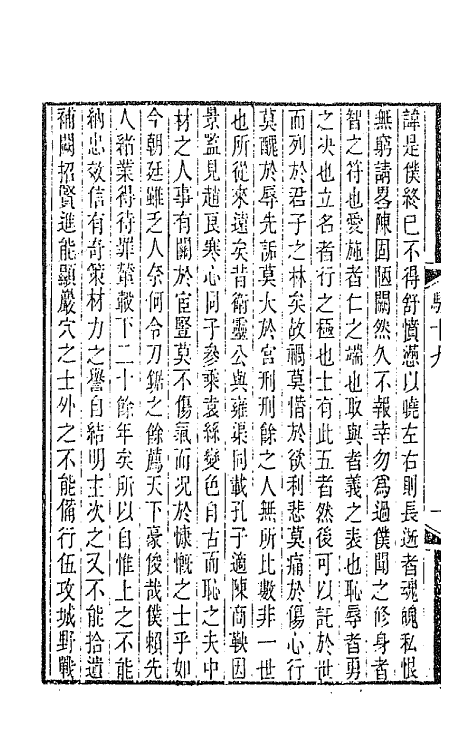 諱是僕終已不得舒憤懣以曉左右則長逝者魂魄私恨
無窮請畧陳固陋闕然久不報幸勿爲過僕聞之修身者
智之符也愛施者仁之端也取與者義之表也恥辱者勇
之决也立名者行之極也士有此五者然後可以託於世
而列於君子之林矣故禍莫憯於欲利悲莫痛於傷心行
莫醜於辱先詬莫大於宮刑刑餘之人無所比數非一世
也所從來遠矣昔衛靈公與雍渠同載孔子適陳商鞅因
景監見趙良寒心同子參乘袁絲變色自古而恥之夫中
材之人事有關於宦豎莫不傷氣而况於慷慨之士乎如
今朝廷雖乏人奈何令刀鋸之餘薦天下豪俊哉僕賴先
人緒業得待罪輦轂下二十餘年矣所以自惟上之不能
納忠效信有奇策材力之譽自結明主次之又不能拾遺
補闕招賢進能顯巖穴之士外之不能備行伍攻城野戰